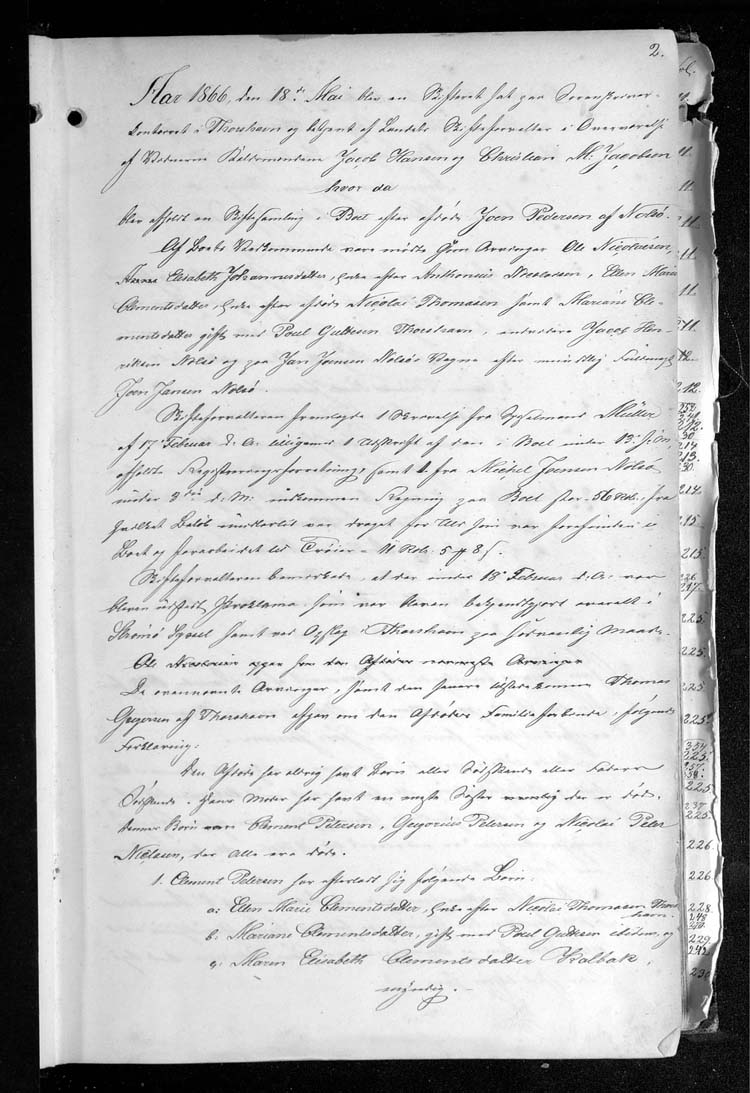 2.
Aar 1866, den 18de Mai blev en Skifteret sat paa Sorenskriver-
kontoret i Thorshavn og betjent af Landets Skifteforvalter i Overværelse
af Vidnerne Kaldsmændene Jacob Hansen og Christian M: Jacobsen
hvor da
blev afholdt en Skiftesamling i Boet efter afdøde Joen Pedersen af Nolsø.
Af Boets Vedkommende vare mødte som Arvinger Ole Nicolaisen,
Elisabeth Johannesdatter, Enke efter Anthonius Nicolaisen, Ellen Marie
Clementsdatter, Enke efter afdøde Nicolai Thomasen samt Mariane Cle-
mentsdatter gift med Poul Guttesen Thorshavn, endvidere Jacob Hen-
riksen Nolsø og paa Jan Joensen Nolsøs Vegne efter mundtlig Fuldmagt
Joen Jansen Nolsø.
Skifteforvalteren fremlagde 1 Skrivelse fra Sysselmand Müller
af 17de Februar d. A. tilligemed 1 Udskrift af den i Boet under 13de s. M.
afholdte Registreringsforretning, samt 1 fra Michel Joensen Nolsø
under 3die d. M. indkommen Regning paa Boet stor 56 Rd. fra
hvilket Beløb imidlertid var draget for Uld som var forefunden i
Boet og forarbeidet til Trøier 11 Rd. 5 # 8 s.
Skifteforvalteren bemærkede, at der under 18de Februar d. A. var
bleven udstedt Proklama som var bleven bekjendtgjort overalt i
Strømø Syssel samt ved Opslag i Thorshavn paa sædvanlig Maade.
De ovennævnte Arvinger, samt den senere tilstedekomne Thomas
Gregersen af Thorshavn afgav om den Afdødes Familieforhold følgende
Forklaring:
Den Afdøde har aldrig havt Børn eller Sødskende eller Faders
Sødskende. Hans Moder har havt en eneste Søster nemlig der er død,
dennes Børn vare Clement Petersen, Gregorius Petersen og Nicolai Peter
Nielsen, der alle ere døde.
1. Clement Petersen har efterladt sig følgende Børn:
a: Ellen Marie Clementsdatter, Enke efter Nicolai Thomasen Thors-
havn.
b: Mariane Clementsdatter, gift med Poul Guttesen ibidem, og
c: Maren Elisabeth Clementsdatter Kalbak,
myndig.